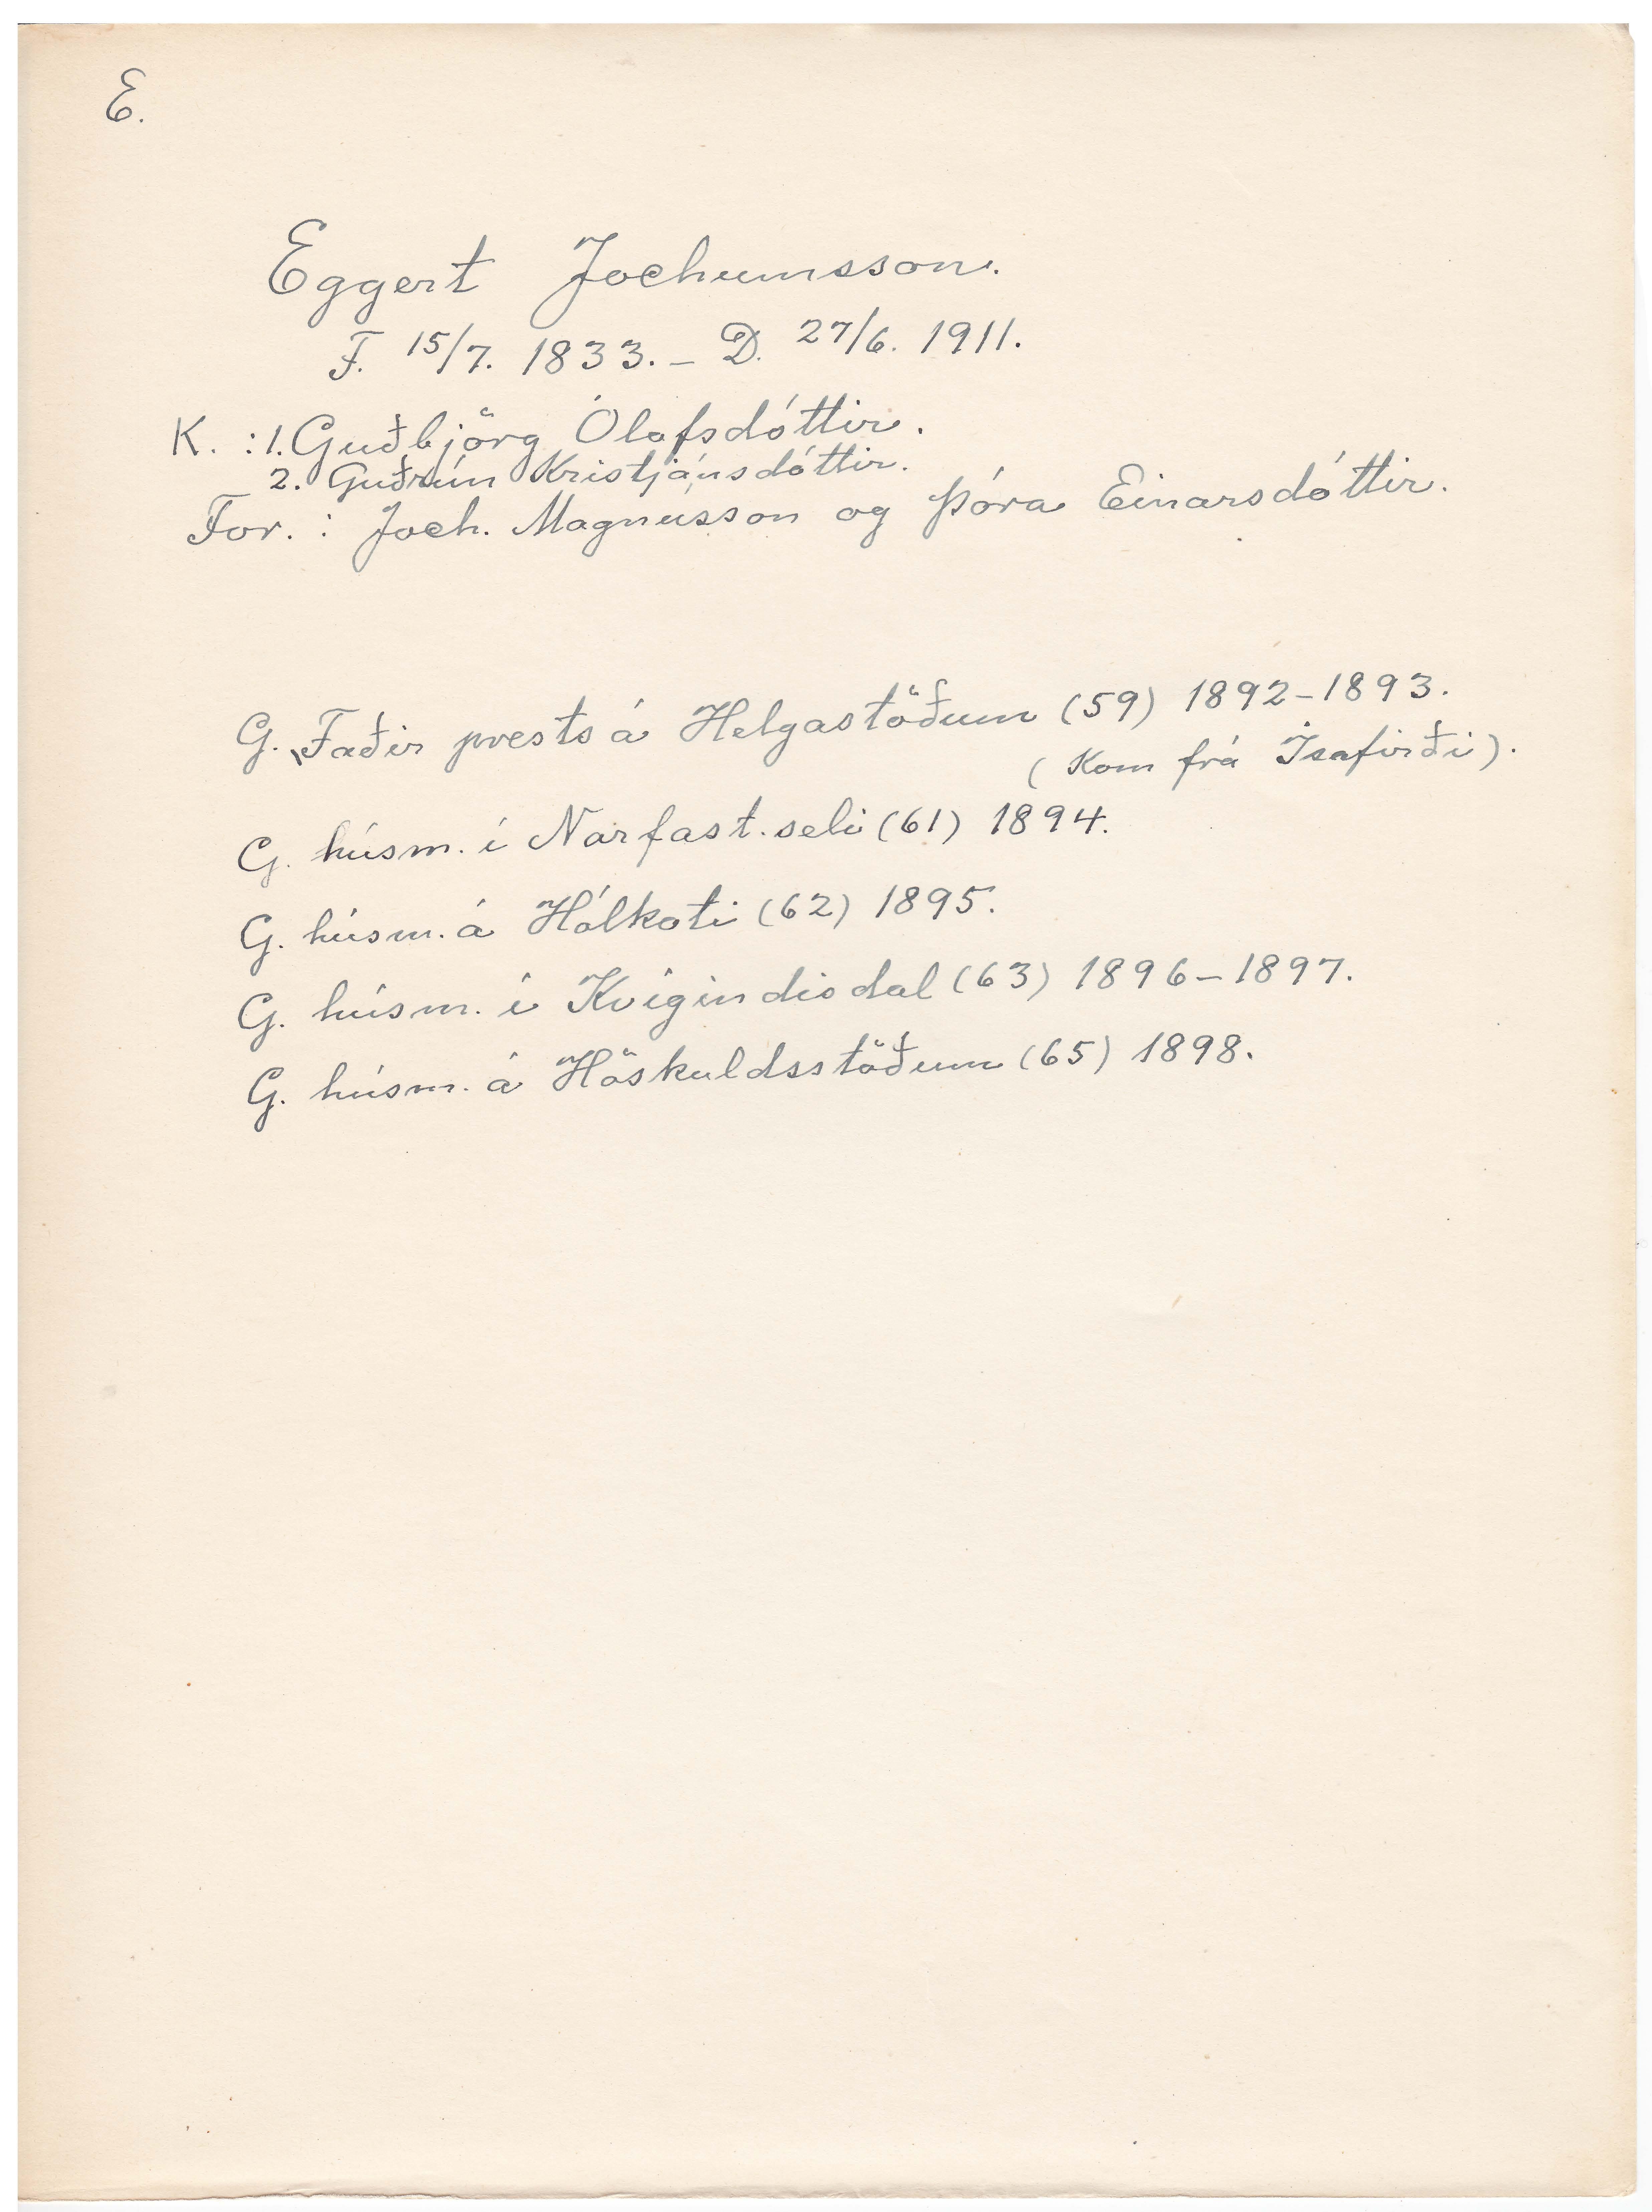 E.
Eggert Jochumsson.
F. 15/7. 1833. – D. 27/6. 1911.
K. : 1. Guðbjörg Ólafsdóttir.
2. Guðrún Kristjánsdóttir.
For. : Joch. Magnússon og Þóra Einarsdóttir.
G. Faðir prests á Helgastöðum (59) 1892–1893.
(Kom frá Ísafirði).
G. húsm. í Narfast. seli (61) 1894.
G. húsm. á Hólkoti (62) 1895.
G. húsm. í Kvígindisdal (63) 1896–1897.
G. húsm. á Höskuldsstöðum (65) 1898.